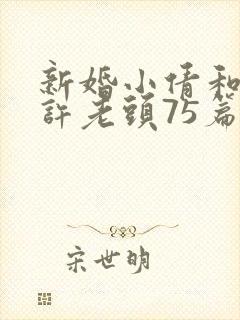 新婚小倩和
許老頭75篇
宋世明